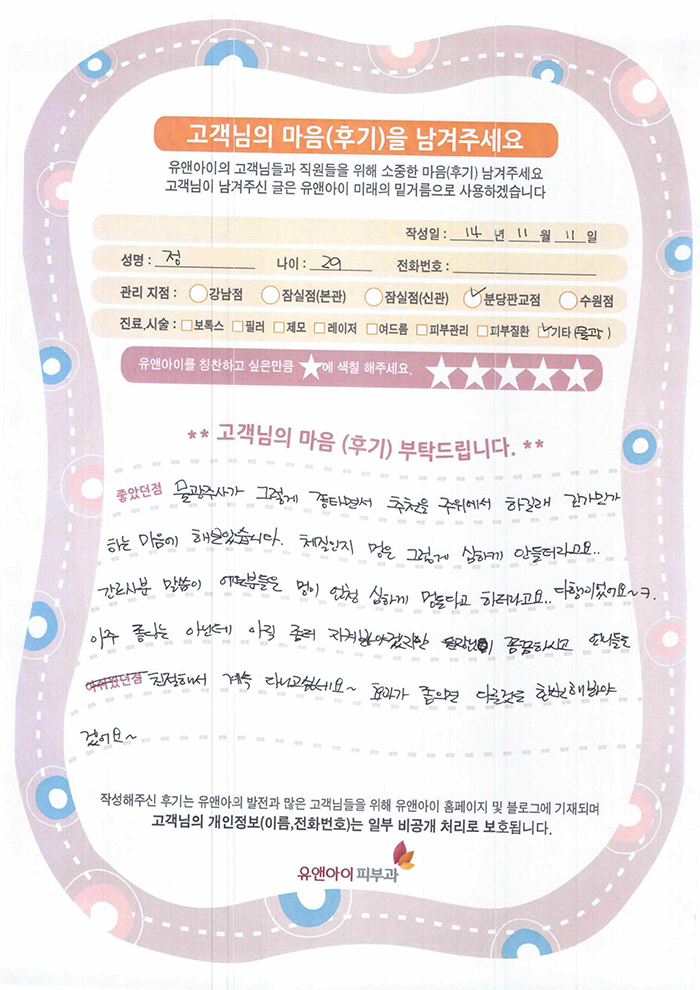 고객님의 마음(후기)을 남겨주세요
유앤아이의 고객님들과 직원들을 위해 소중한 마음(후기) 남겨주세요
고객님이 남겨주신 글은 유앤아이 미래의 밑거름으로 사용하겠습니다
작성일 : 14 년 11 월 11 일
성명 : 정 나이 : 29 전화번호 :
관리 지점 : 강남점 잠실점(본관) 잠실점(신관) 분당판교점 수원점
진료.시술 : 보톡스 필러 제모 레이저 여드름 피부관리 피부질환 기타 (물광)
유앤아이를 칭찬하고 싶은만큼 ★에 색칠 해주세요. ★★★★★
** 고객님의 마음 (후기) 부탁드립니다. **
좋았던점 물광주사가 그렇게 좋다면서 추천을 주위에서 하길래
하는 마음에 해보았습니다. 체질인지 멍은 그렇게 심하게 안들더라고요..
간호사분 말씀이 어떤분들은 멍이 엄청 심하게 멍든다고 하더라고요.. 다행이었어요~ㅋ.
아주 좋다는 아닌데 아직 좀더 지켜봐야겠지만 꼼꼼하시고 언니들도
아쉬웠던점 친절해서 계속 다니고싶네요~ 효과가 좋으면 다른것도 한번 해봐야
겠어요~
작성해주신 후기는 유앤아의 발전과 많은 고객님들을 위해 유앤아이 홈페이지 및 블로그에 기재되며
고객님의 개인정보(이름,전화번호)는 일부 비공개 처리로 보호됩니다.
유앤아이피부과